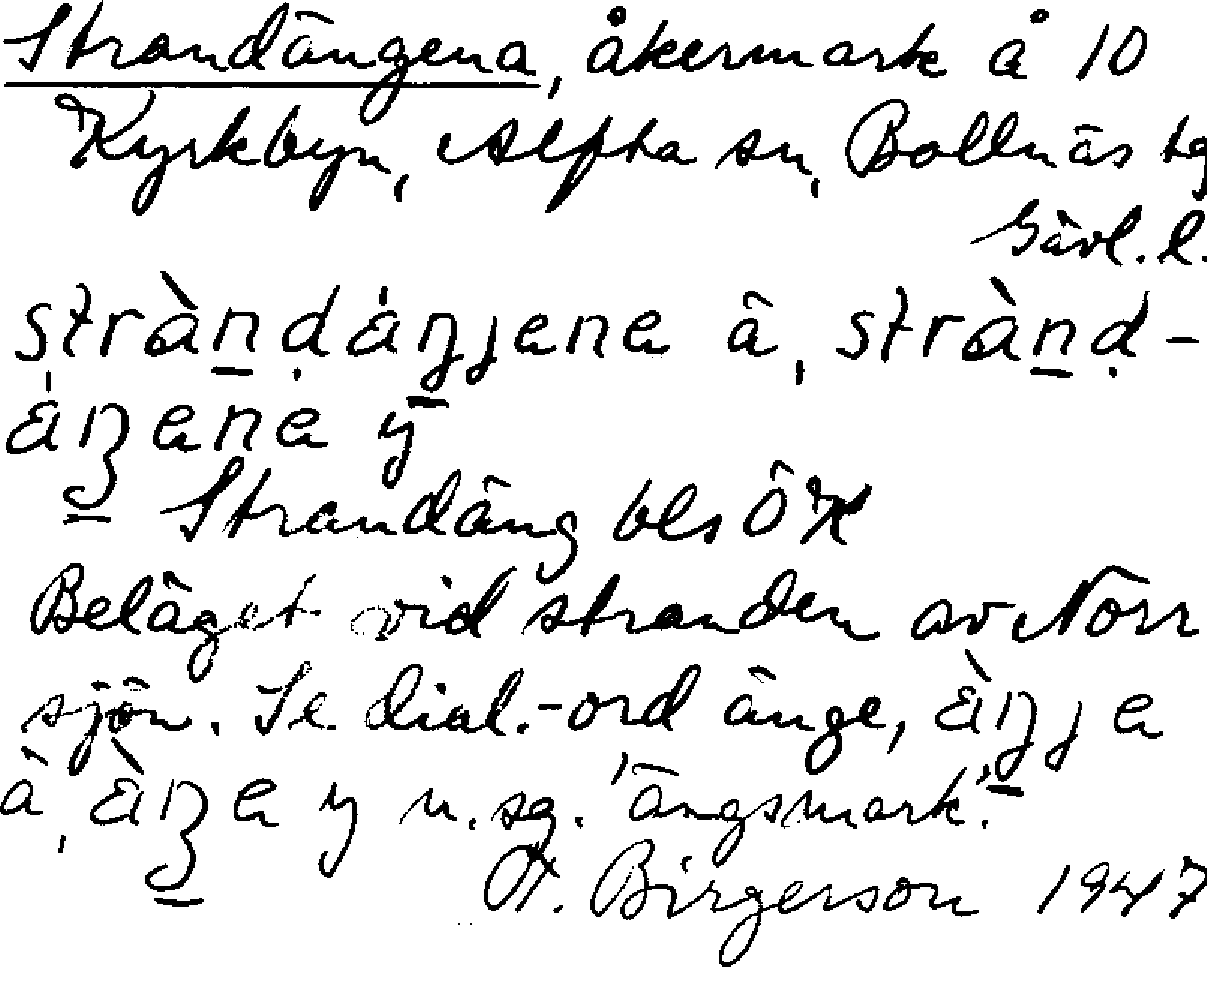 Strandängena, åkermark å 10
Kyrkbyn, Alfta sn, Bollnäs tg
Gävl. l.
stràndáŋjena ä, strànd-
áŋena y
Strandäng bls ÖK
Beläget vid stranden av Norr
sjön. Se dial.-ord änge, àŋje
ä, àŋe y n. sg. 'ängsmark'.
A. Birgerson 1947